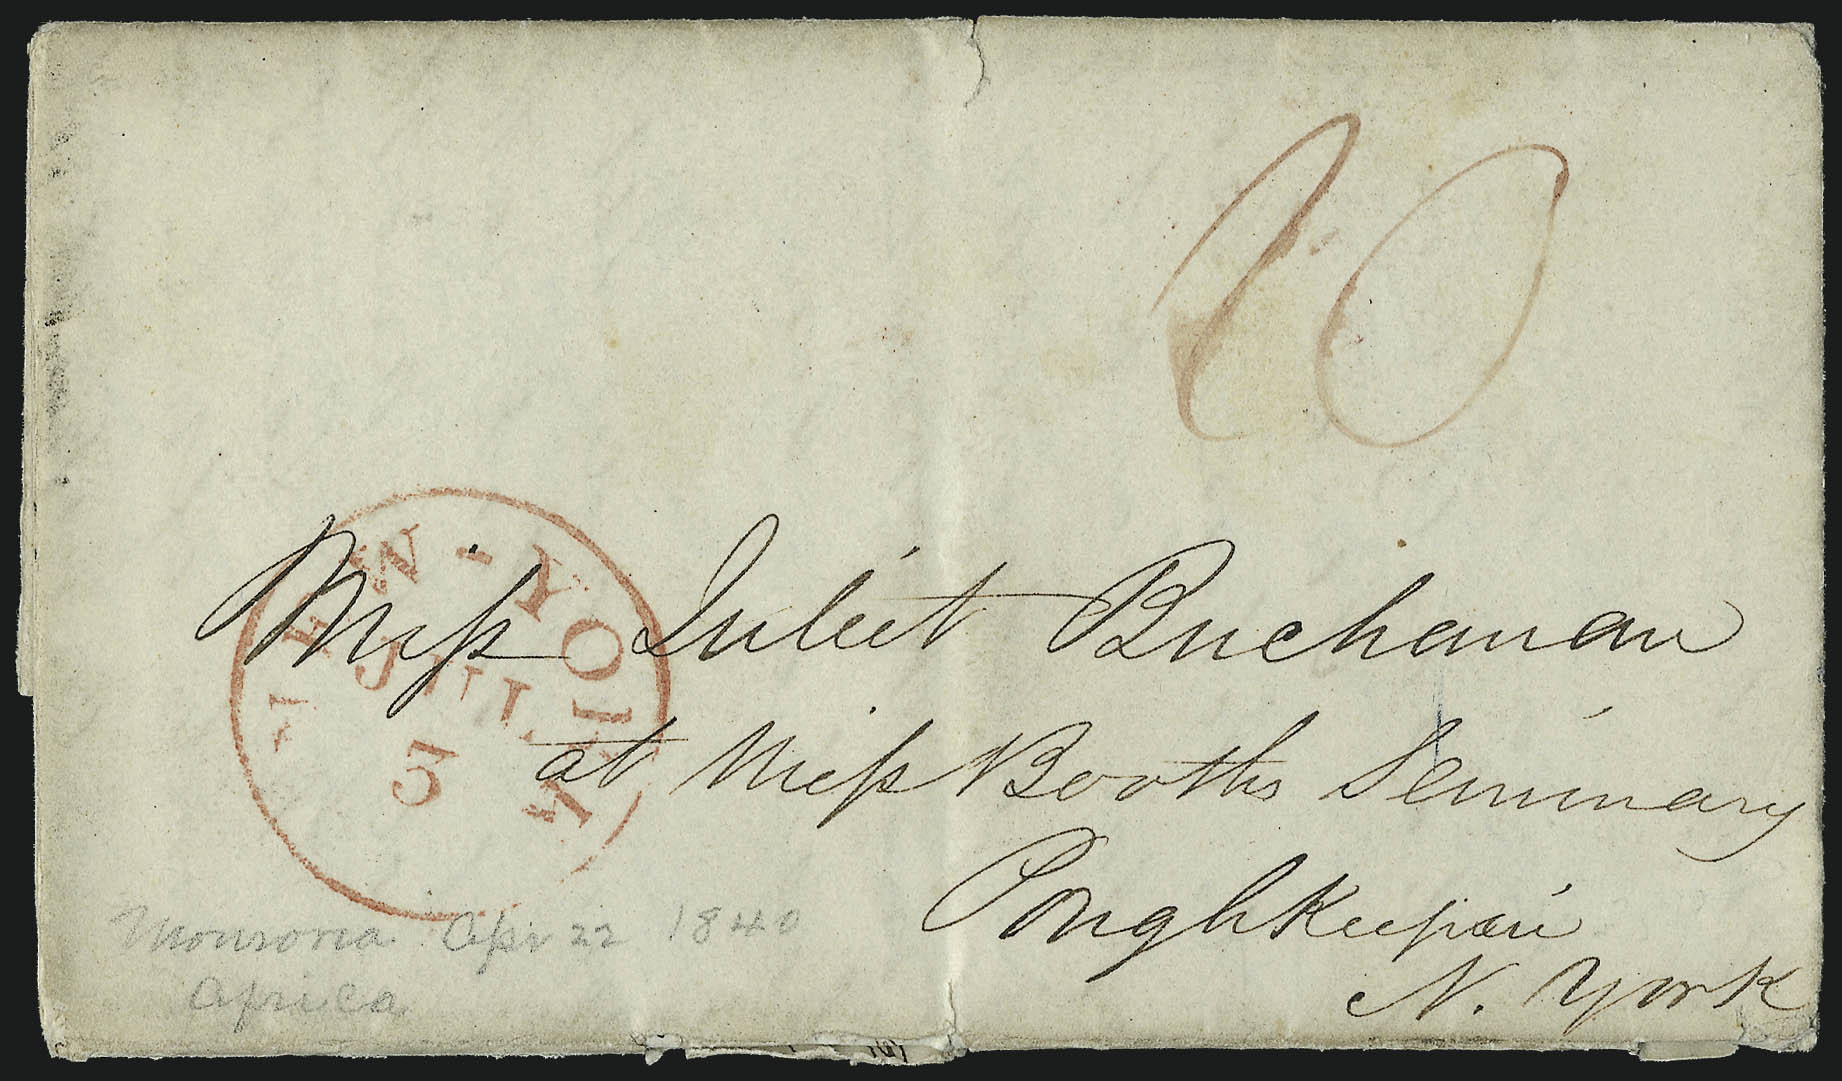 10
NEW-YORK
JUL
5
Miss Juliet Buchanan
at Miss Booths Seminary
Poughkeepsie
N. York
Monrovia Apr 22 1840
Africa